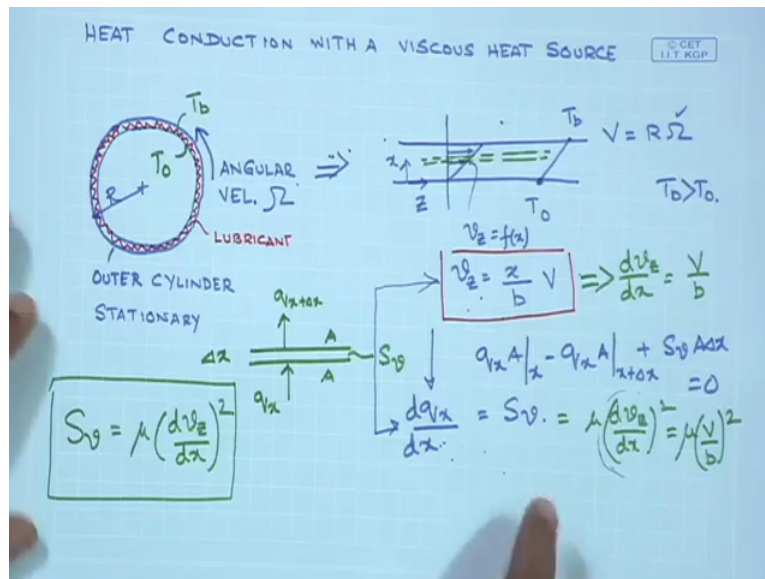 HEAT CONDUCTION WITH A VISCOUS HEAT SOURCE
© CET
I.I.T. KGP
T_b
T_0
R
ANGULAR
VEL. Ω
LUBRICANT
OUTER CYLINDER
STATIONARY
⇒
x
z
T_b
T_0
V = RΩ
T_b > T_0.
v_z = f(x)
v_z = x/b V
⇒ dv_z/dx = V/b
q_{x+Δx}
A
Δx
A
q_x
S_v
q_x A|_x - q_x A|_{x+Δx} + S_v AΔx
= 0
dq_x/dx = S_v. = μ(dv_z/dx)^2 = μ(V/b)^2
S_v = μ(dv_z/dx)^2